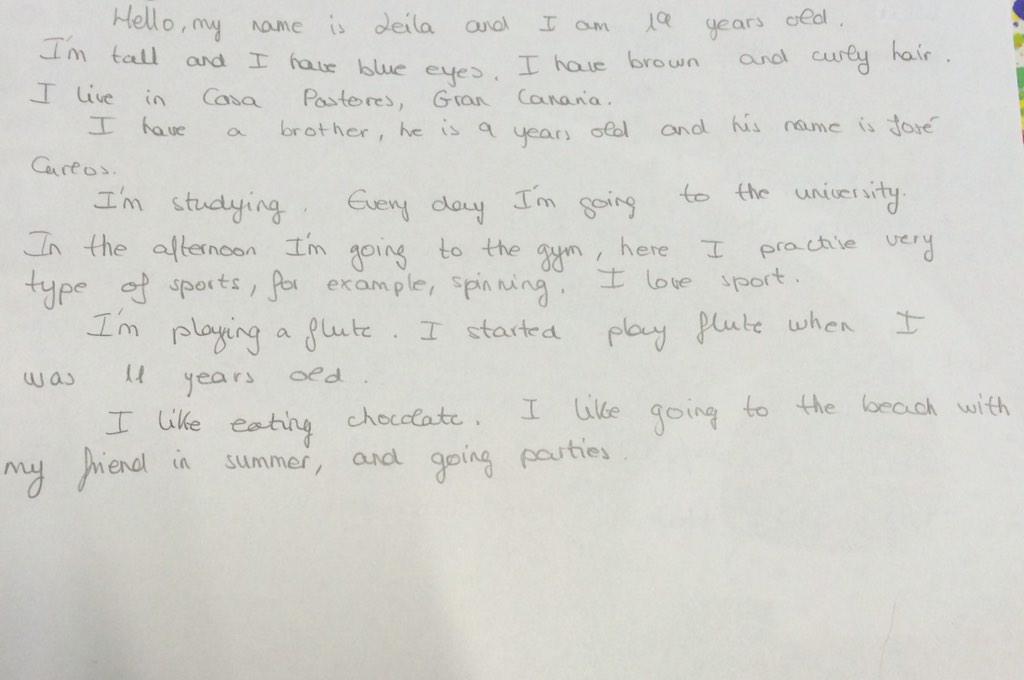 Hello, my name is Leila and I am 19 years old.
I'm tall and I have blue eyes. I have brown and curly hair.
I live in Casa Pastores, Gran Canaria.
I have a brother, he is 9 years old and his name is José
Carlos.
I'm studying. Every day I'm going to the university.
In the afternoon I'm going to the gym, here I practise very
type of sports, for example, spinning. I love sport.
I'm playing a flute. I started play flute when I
was 11 years old.
I like eating chocolate. I like going to the beach with
my friend in summer, and going parties.